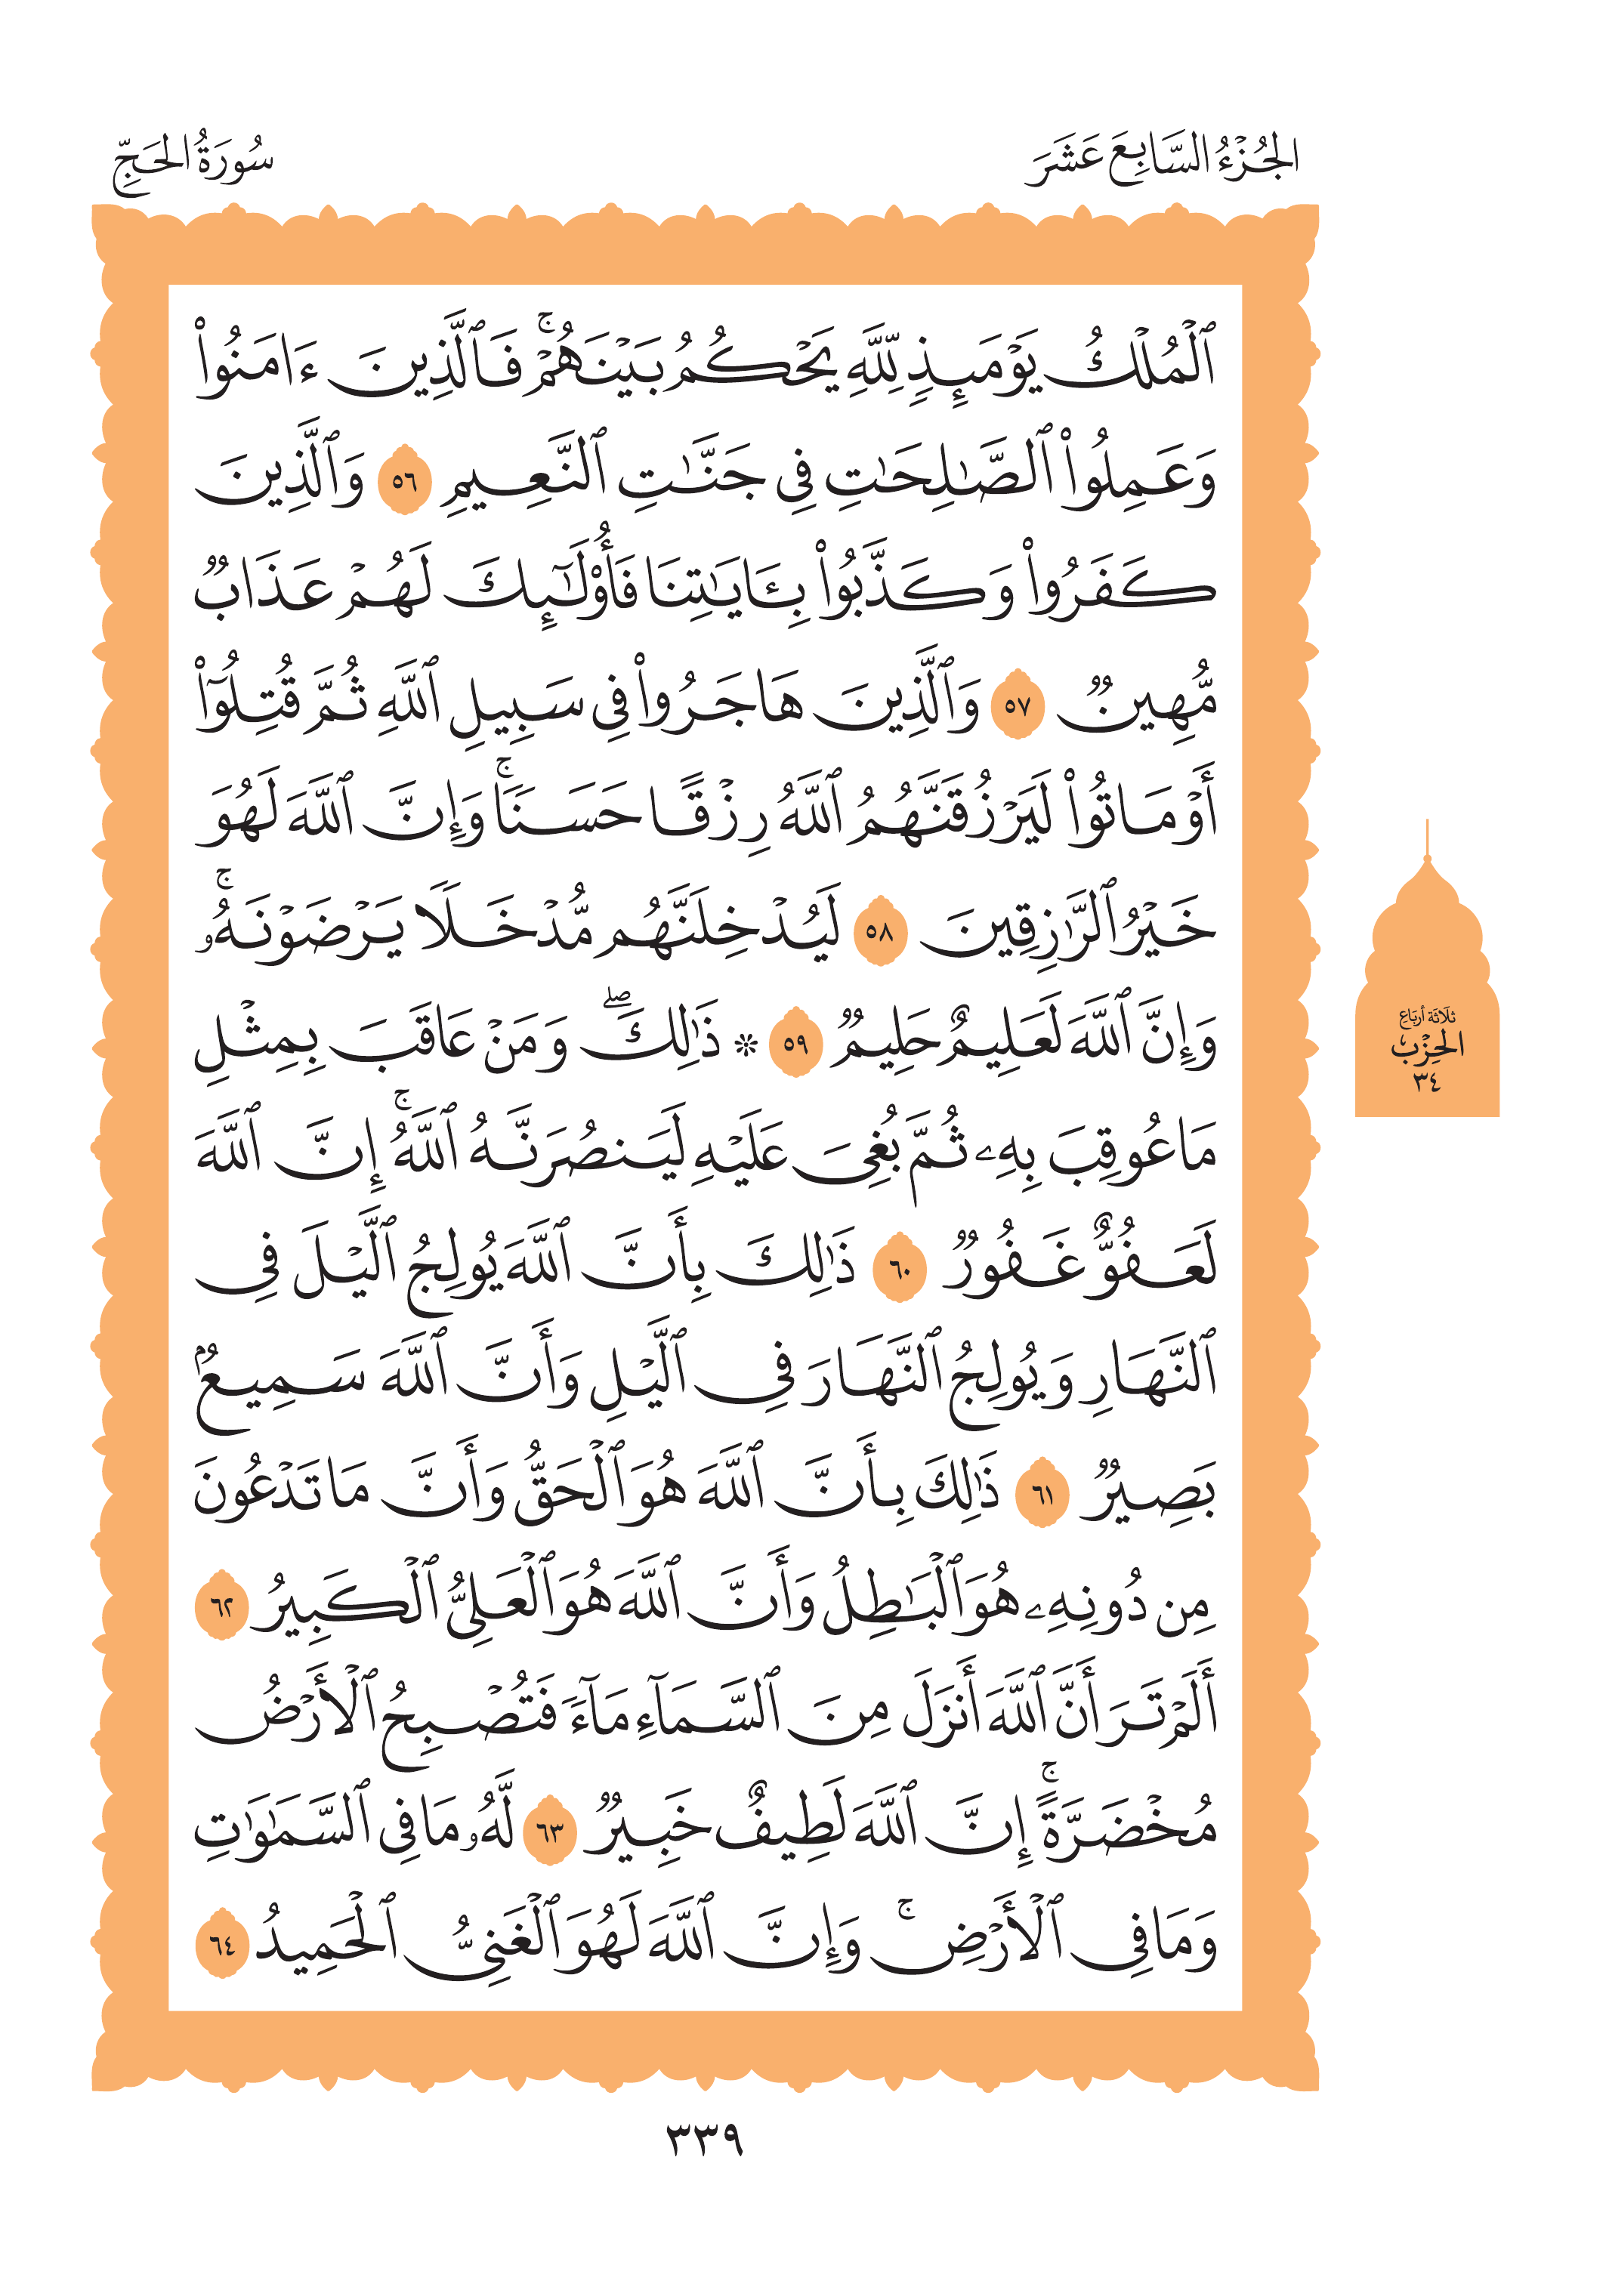 الجُزْءُ السَّابِعَ عَشَرَ
سُورَةُ الحَجِّ
ٱلْمُلْكُ يَوْمَئِذٍ لِّلَّهِ يَحْكُمُ بَيْنَهُمْۚ فَٱلَّذِينَ ءَامَنُوا۟
وَعَمِلُوا۟ ٱلصَّٰلِحَٰتِ فِى جَنَّٰتِ ٱلنَّعِيمِ ٥٦ وَٱلَّذِينَ
كَفَرُوا۟ وَكَذَّبُوا۟ بِـَٔايَٰتِنَا فَأُو۟لَٰٓئِكَ لَهُمْ عَذَابٌ
مُّهِينٌ ٥٧ وَٱلَّذِينَ هَاجَرُوا۟ فِى سَبِيلِ ٱللَّهِ ثُمَّ قُتِلُوٓا۟
أَوْ مَاتُوا۟ لَيَرْزُقَنَّهُمُ ٱللَّهُ رِزْقًا حَسَنًاۚ وَإِنَّ ٱللَّهَ لَهُوَ
خَيْرُ ٱلرَّٰزِقِينَ ٥٨ لَيُدْخِلَنَّهُم مُّدْخَلًا يَرْضَوْنَهُۥۚ
وَإِنَّ ٱللَّهَ لَعَلِيمٌ حَلِيمٌ ٥٩ ۞ ذَٰلِكَۖ وَمَنْ عَاقَبَ بِمِثْلِ
مَا عُوقِبَ بِهِۦ ثُمَّ بُغِىَ عَلَيْهِ لَيَنصُرَنَّهُ ٱللَّهُۚ إِنَّ ٱللَّهَ
لَعَفُوٌّ غَفُورٌ ٦٠ ذَٰلِكَ بِأَنَّ ٱللَّهَ يُولِجُ ٱلَّيْلَ فِى
ٱلنَّهَارِ وَيُولِجُ ٱلنَّهَارَ فِى ٱلَّيْلِ وَأَنَّ ٱللَّهَ سَمِيعٌۢ
بَصِيرٌ ٦١ ذَٰلِكَ بِأَنَّ ٱللَّهَ هُوَ ٱلْحَقُّ وَأَنَّ مَا تَدْعُونَ
مِن دُونِهِۦ هُوَ ٱلْبَٰطِلُ وَأَنَّ ٱللَّهَ هُوَ ٱلْعَلِىُّ ٱلْكَبِيرُ ٦٢
أَلَمْ تَرَ أَنَّ ٱللَّهَ أَنزَلَ مِنَ ٱلسَّمَآءِ مَآءً فَتُصْبِحُ ٱلْأَرْضُ
مُخْضَرَّةًۚ إِنَّ ٱللَّهَ لَطِيفٌ خَبِيرٌ ٦٣ لَّهُۥ مَا فِى ٱلسَّمَٰوَٰتِ
وَمَا فِى ٱلْأَرْضِۚ وَإِنَّ ٱللَّهَ لَهُوَ ٱلْغَنِىُّ ٱلْحَمِيدُ ٦٤
ثلَاثَة أربَاع
الحِزْب
٣٤
٣٣٩